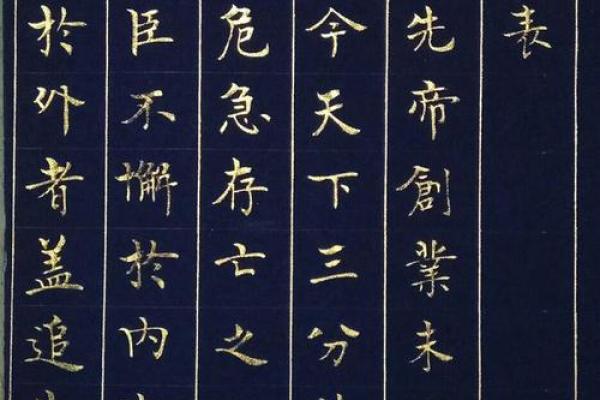 表
先帝創業未
今天下三分
危急存亡之
臣不懈於内
於外者盖追